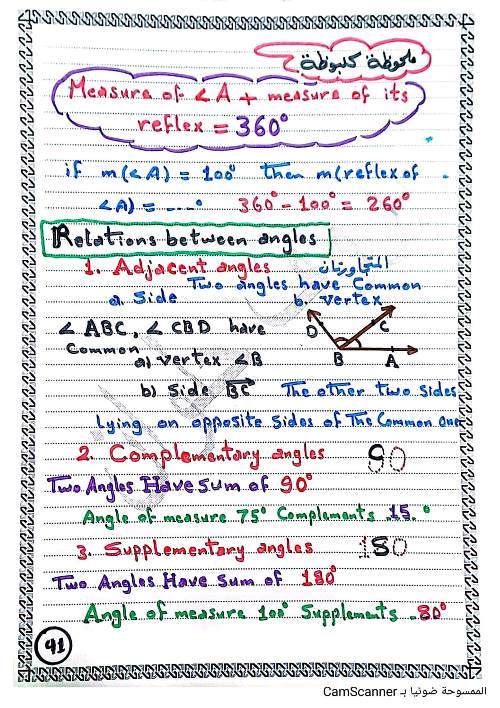 ملحوظة كلبوظة
Measure of ∠A + measure of its
reflex = 360°
if m(∠A) = 100° then m(reflex of
∠A) = ----° 360° - 100° = 260°
Relations between angles
1. Adjacent angles المتجاورتان
Two angles have Common
a. Side b. vertex
∠ ABC, ∠ CBD have
Common
a) vertex ∠B
D C B A
b) Side BC The other two sides
Lying on opposite Sides of The Common One
2. Complementary angles 90
Two Angles Have Sum of 90°
Angle of measure 75° Complements .15. °
3. Supplementary angles 180
Two Angles Have Sum of 180°
Angle of measure 100° Supplements .80°
91
الممسوحة ضوئيا بـ CamScanner